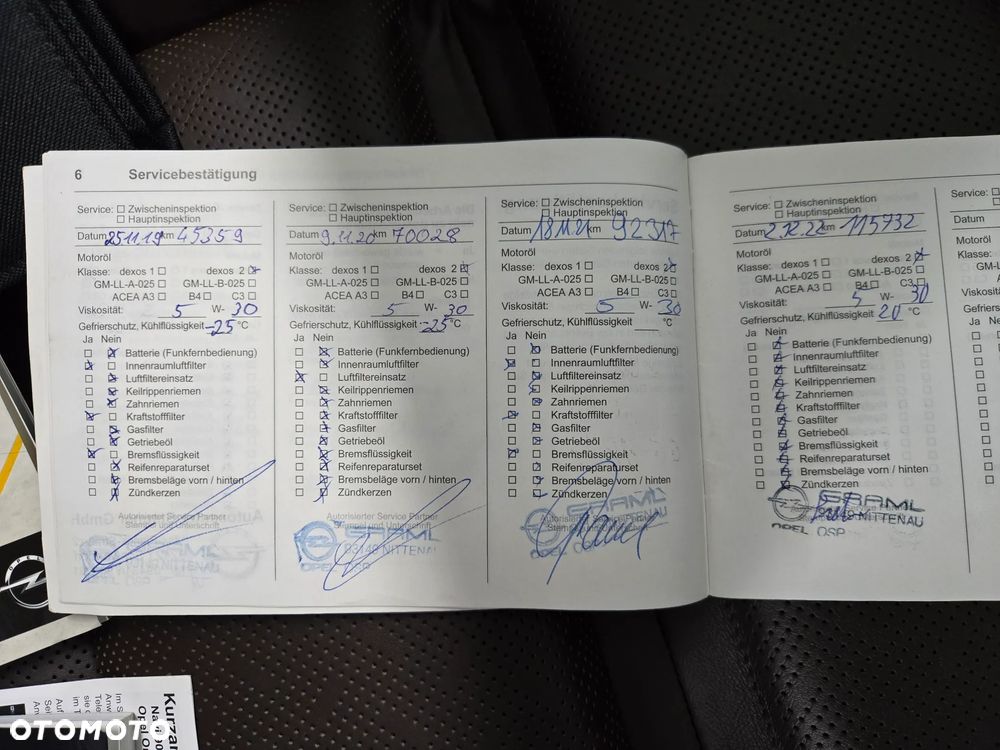 6 Servicebestätigung
Service: Zwischeninspektion
Hauptinspektion
Datum 25.11.19 km 45359
Motoröl
Klasse: dexos 1 dexos 2
GM-LL-A-025 GM-LL-B-025
ACEA A3 B4 C3
Viskosität: 5 W- 30
Gefrierschutz, Kühlflüssigkeit -25 °C
Ja Nein
Batterie (Funkfernbedienung)
Innenraumluftfilter
Luftfiltereinsatz
Keilrippenriemen
Zahnriemen
Kraftstofffilter
Gasfilter
Getriebeöl
Bremsflüssigkeit
Reifenreparaturset
Bremsbeläge vorn / hinten
Zündkerzen
Autorisierter Service Partner
Stempel und Unterschrift
NITTENAU
Service: Zwischeninspektion
Hauptinspektion
Datum 9.11.20 km 70028
Motoröl
Klasse: dexos 1 dexos 2
GM-LL-A-025 GM-LL-B-025
ACEA A3 B4 C3
Viskosität: 5 W- 30
Gefrierschutz, Kühlflüssigkeit -25 °C
Ja Nein
Batterie (Funkfernbedienung)
Innenraumluftfilter
Luftfiltereinsatz
Keilrippenriemen
Zahnriemen
Kraftstofffilter
Gasfilter
Getriebeöl
Bremsflüssigkeit
Reifenreparaturset
Bremsbeläge vorn / hinten
Zündkerzen
Autorisierter Service Partner
Stempel und Unterschrift
GRAML
93149 NITTENAU
OPEL OSP
Service: Zwischeninspektion
Hauptinspektion
Datum 18.11.21 km 92317
Motoröl
Klasse: dexos 1 dexos 2
GM-LL-A-025 GM-LL-B-025
ACEA A3 B4 C3
Viskosität: 5 W- 30
Gefrierschutz, Kühlflüssigkeit °C
Ja Nein
Batterie (Funkfernbedienung)
Innenraumluftfilter
Luftfiltereinsatz
Keilrippenriemen
Zahnriemen
Kraftstofffilter
Gasfilter
Getriebeöl
Bremsflüssigkeit
Reifenreparaturset
Bremsbeläge vorn / hinten
Zündkerzen
Autorisierter Service Partner
GRAML
OPEL OSP
Service: Zwischeninspektion
Hauptinspektion
Datum 2.12.22 km 115732
Motoröl
Klasse: dexos 1 dexos 2
GM-LL-A-025 GM-LL-B-025
ACEA A3 B4 C3
Viskosität: 5 W- 30
Gefrierschutz, Kühlflüssigkeit 20 °C
Ja Nein
Batterie (Funkfernbedienung)
Innenraumluftfilter
Luftfiltereinsatz
Keilrippenriemen
Zahnriemen
Kraftstofffilter
Gasfilter
Getriebeöl
Bremsflüssigkeit
Reifenreparaturset
Bremsbeläge vorn / hinten
Zündkerzen
GRAML
NITTENAU
OPEL OSP
Service:
Datum
Motoröl
Klasse:
Viskosität:
Gefrierschutz
Ja Nein
OPEL
OTOMOTO